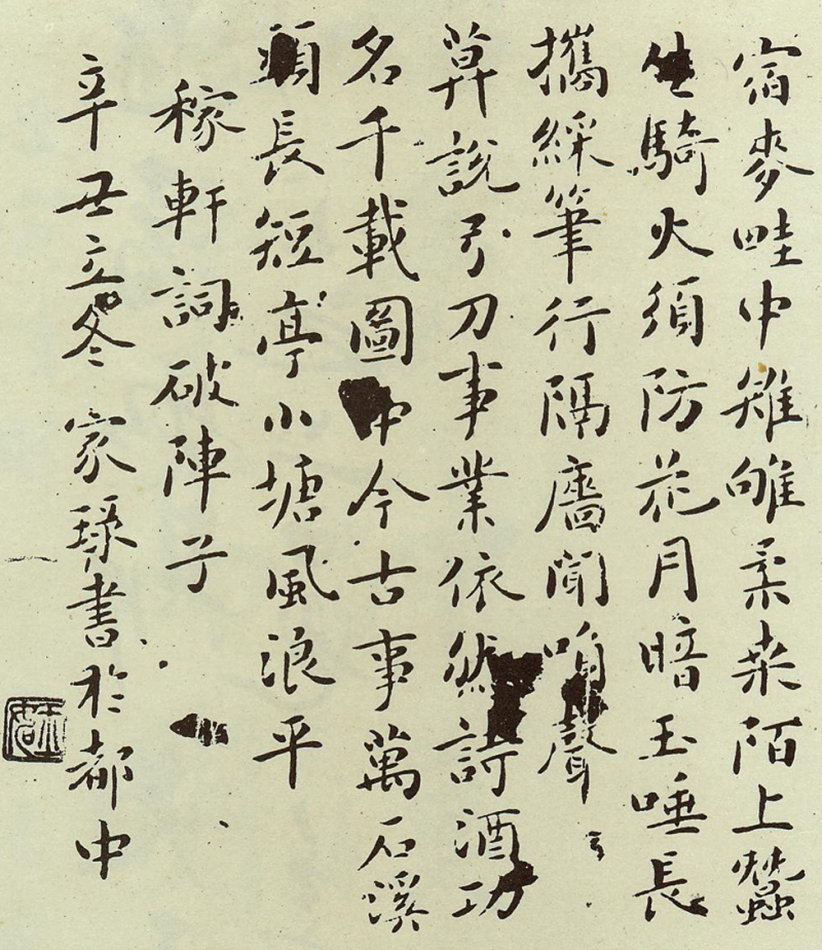 宿麥畦中雉柔桑陌上蠶
生騎火須防花月暗玉唾長
攜綵筆行隔廧聞聲
莫說弓刀事業依然詩酒功
名千載圖中今古事萬石溪
頭長短亭小塘風浪平
稼軒詞破陣子
辛丑立冬家書於都中